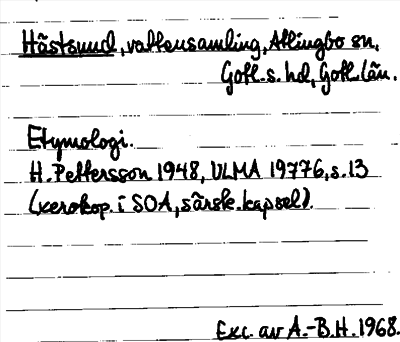 Hästsund, vattensamling, Allingbo sn,
Gotl. s. hd, Gotl. län.
Etymologi.
H. Pettersson 1948, ULMA 19776, s. 13
(xerokop. i SOA, särsk. kapsel).
Exc. av A.-B.H. 1968.